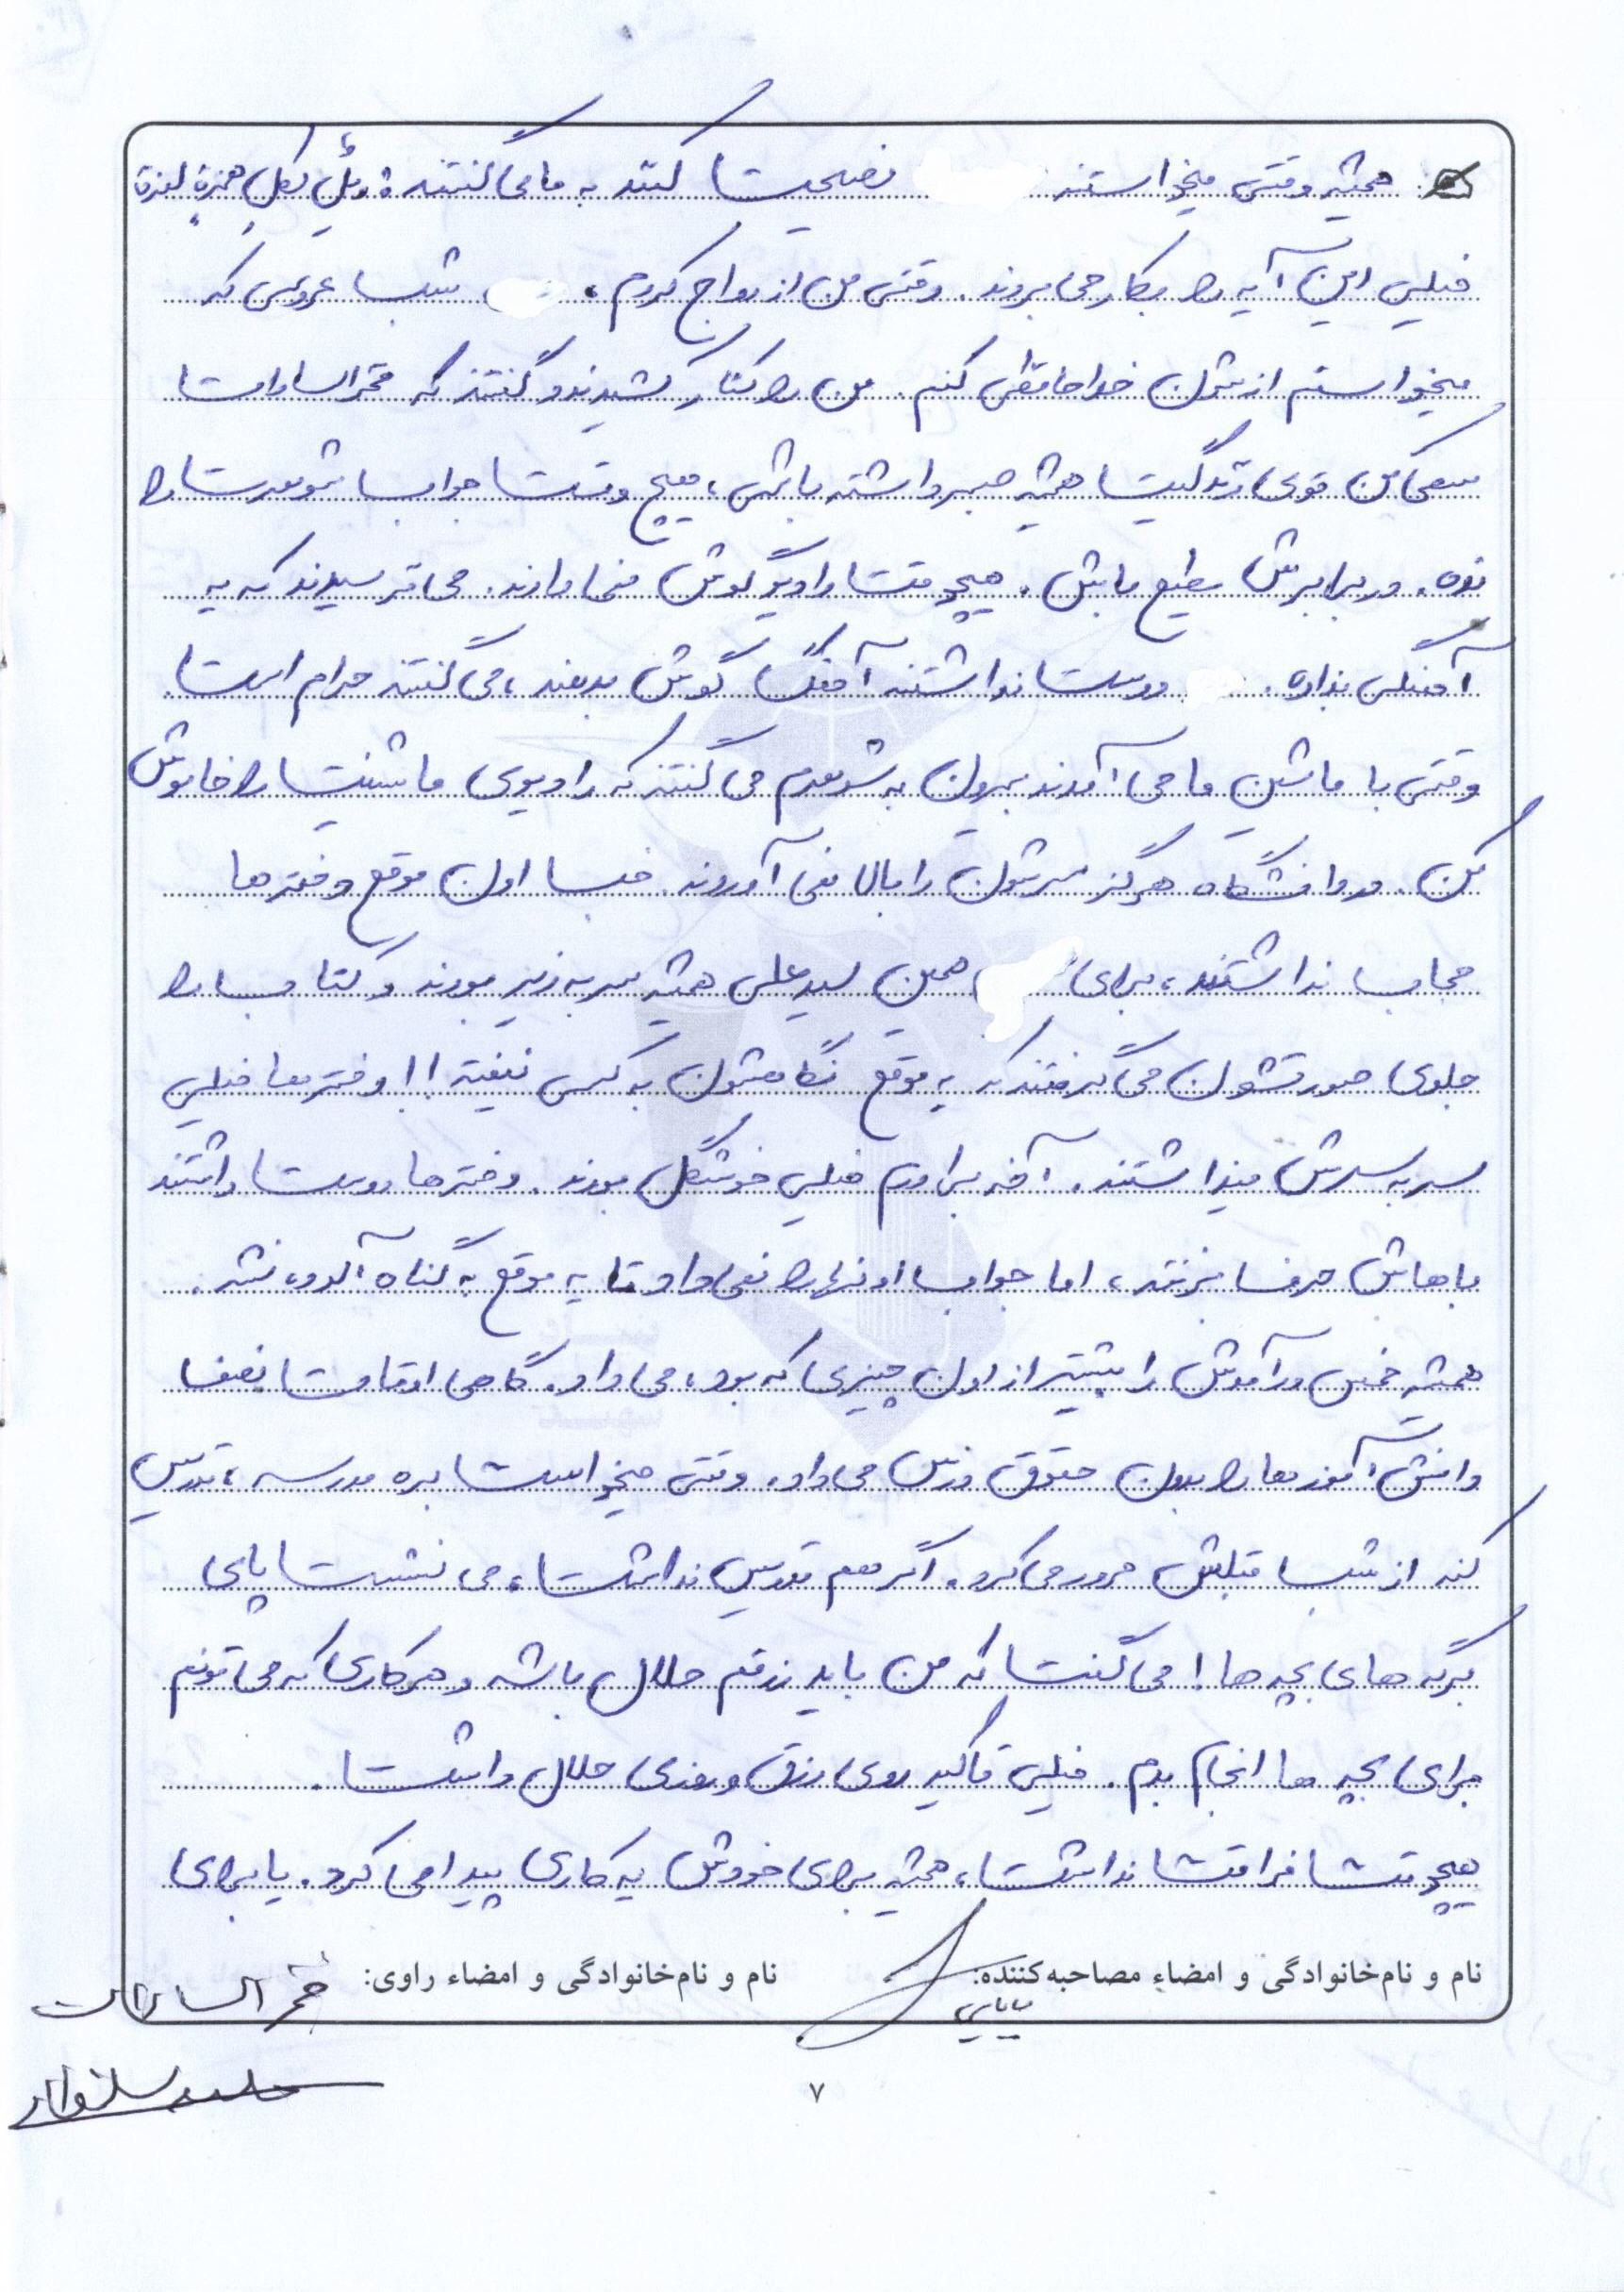 همیشه وقتی میخواستند نصیحت کنند به ما می گفتند: ویلٌ لکلِ همزةٍ لمزة
خیلی این آیه را بکار می بردند. وقتی من ازدواج کردم، شب عروسی که
میخواستم ازشون خداحافظی کنم. من را کنار کشیدند و گفتند که قمرالسادات
سعی کن توی زندگیت همیشه صبر داشته باشی، هیچ وقت جواب شوهرت را
نده. در برابرش مطیع باش. هیچوقت رادیو گوش نمی دادند. می ترسیدند که یه
آهنگی بذاره. دوست نداشتند آهنگ گوش بدهند، می گفتند حرام است.
وقتی با ماشین ما می آمدند بیرون به شوهرم می گفتند که رادیوی ماشینت را خاموش
کن. در دانشگاه هرگز سرشون را بالا نمی آوردند. خب اون موقع دخترها
حجاب نداشتند، برای همین سید علی همیشه سر به زیر بودند و کتاب را
جلوی صورتشون می گرفتند که یه موقع نگاهشون به کسی نیفته!! دخترها خیلی
سر به سرش میذاشتند. آخه برادرم خیلی خوشگل بودند. دخترها دوست داشتند
باهاش حرف بزنند، اما جواب اونها را نمی داد تا یه موقع به گناه آلوده نشه.
همیشه خمس درآمدش را بیشتر از اون چیزی که بود، می داد. گاهی اوقات بعضی
دانش آموزها را بدون حقوق درس می داد. وقتی میخواست بره مدرسه، تدریس
کنه از شب قبلش مرور می کرد. اگر هم تدریس نداشت، می نشست پای
برگه های بچه ها! می گفت که من باید رزقم حلال باشه و هر کاری که می تونم
برای بچه ها انجام بدم. خیلی تاکید روی رزق و روزی حلال داشت.
هیچوقت فراغت نداشت، همیشه برای خودش یه کاری پیدا می کرد. یا برای
نام و نام‌خانوادگی و امضاء مصاحبه‌کننده: بابایی نام و نام‌خانوادگی و امضاء راوی: قمرالسادات
۷